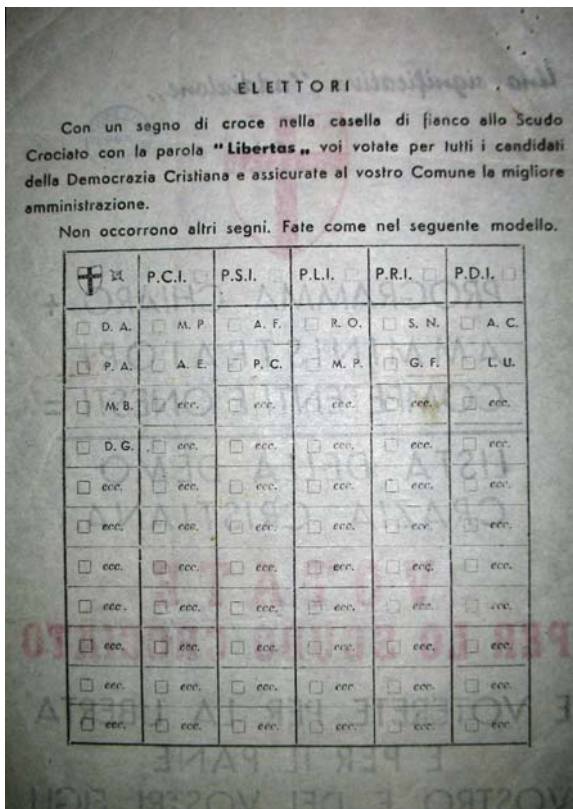 ELETTORI
Con un segno di croce nella casella di fianco allo Scudo
Crociato con la parola "Libertas„ voi votate per tutti i candidati
della Democrazia Cristiana e assicurate al vostro Comune la migliore
amministrazione.
Non occorrono altri segni. Fate come nel seguente modello.
P.C.I. P.S.I. P.L.I. P.R.I. P.D.I.
D. A. M. P A. F. R. O. S. N. A. C.
P. A. A. E. P. C. M. P. G. F. L. U.
M. B. ecc. ecc. ecc. ecc. ecc.
D. G. ecc. ecc. ecc. ecc. ecc.
ecc. ecc. ecc. ecc. ecc. ecc.
ecc. ecc. ecc. ecc. ecc. ecc.
ecc. ecc. ecc. ecc. ecc. ecc.
ecc. ecc. ecc. ecc. ecc. ecc.
ecc. ecc. ecc. ecc. ecc. ecc.
ecc. ecc. ecc. ecc. ecc. ecc.
ecc. ecc. ecc. ecc. ecc. ecc.